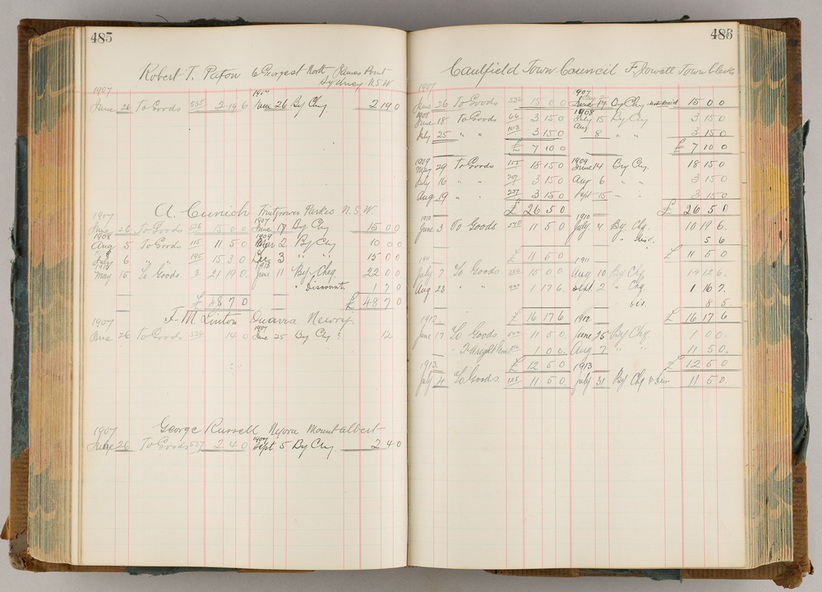 485
Robert T. Paton 6 George St North, Circular Point
Sydney N.S.W.
1907
June 26 To Goods 535 2 19 6 June 26 By Chq 2 19 0
A. Cunich Fruitgrower Parkes N.S.W.
1907 1907
June 26 To Goods 15 0 0 June 19 By Chq 15 0 0
1908 1909
Aug 5 To Goods 115 11 5 0 By Chq 10 0 0
6 " " 195 15 3 0 3 " " 15 0 0
1913 1913
May 15 To Goods 3 21 19 0 June 11 By Chq 22 0 0
" Discounts 1 7 0
£ 48 7 0 £ 48 7 0
F. M. Linton Quarra Newry
1907
June 26 To Goods June 25 By Chq 12
1907
George Russell Mount Albert
June 26 To Goods 527 2 4 0 Sept 5 By Chq 2 4 0
486
Caulfield Town Council F Jowett Town Clerk
1907 1907
June 26 To Goods 15 0 0 June 19 By Chq 15 0 0
1908 1908
June 18 To Goods 66 3 15 0 July 15 By Chq 3 15 0
July 25 " " 3 15 0 Aug 8 " " 3 15 0
£ 7 10 0 £ 7 10 0
1909 1909
May 29 To Goods 115 18 15 0 June 14 By Chq 18 15 0
July 16 " " 3 15 0 Aug 6 " " 3 15 0
Aug 19 " " 3 15 0 Sept 15 " " 3 15 0
£ 26 5 0 £ 26 5 0
June 3 To Goods 11 5 0 July 4 By Chq 10 19 6
" Dis. 5 6
£ 11 5 0 £ 11 5 0
1911 1911
July 7 To Goods 15 0 0 Aug 10 By Chq 14 12 6
Aug 23 " " 1 17 6 Sept 2 " Chq 1 16 7
Dis. 8 5
1912 £ 16 17 6 1912 £ 16 17 6
June 17 To Goods 11 5 0 June 25 By Chq 1 0 0
1 0 0 Aug 7 " " 11 5 0
1913 £ 12 5 0 1913 £ 12 5 0
July 4 To Goods 11 5 0 July 31 By Chq & Dis 11 5 0